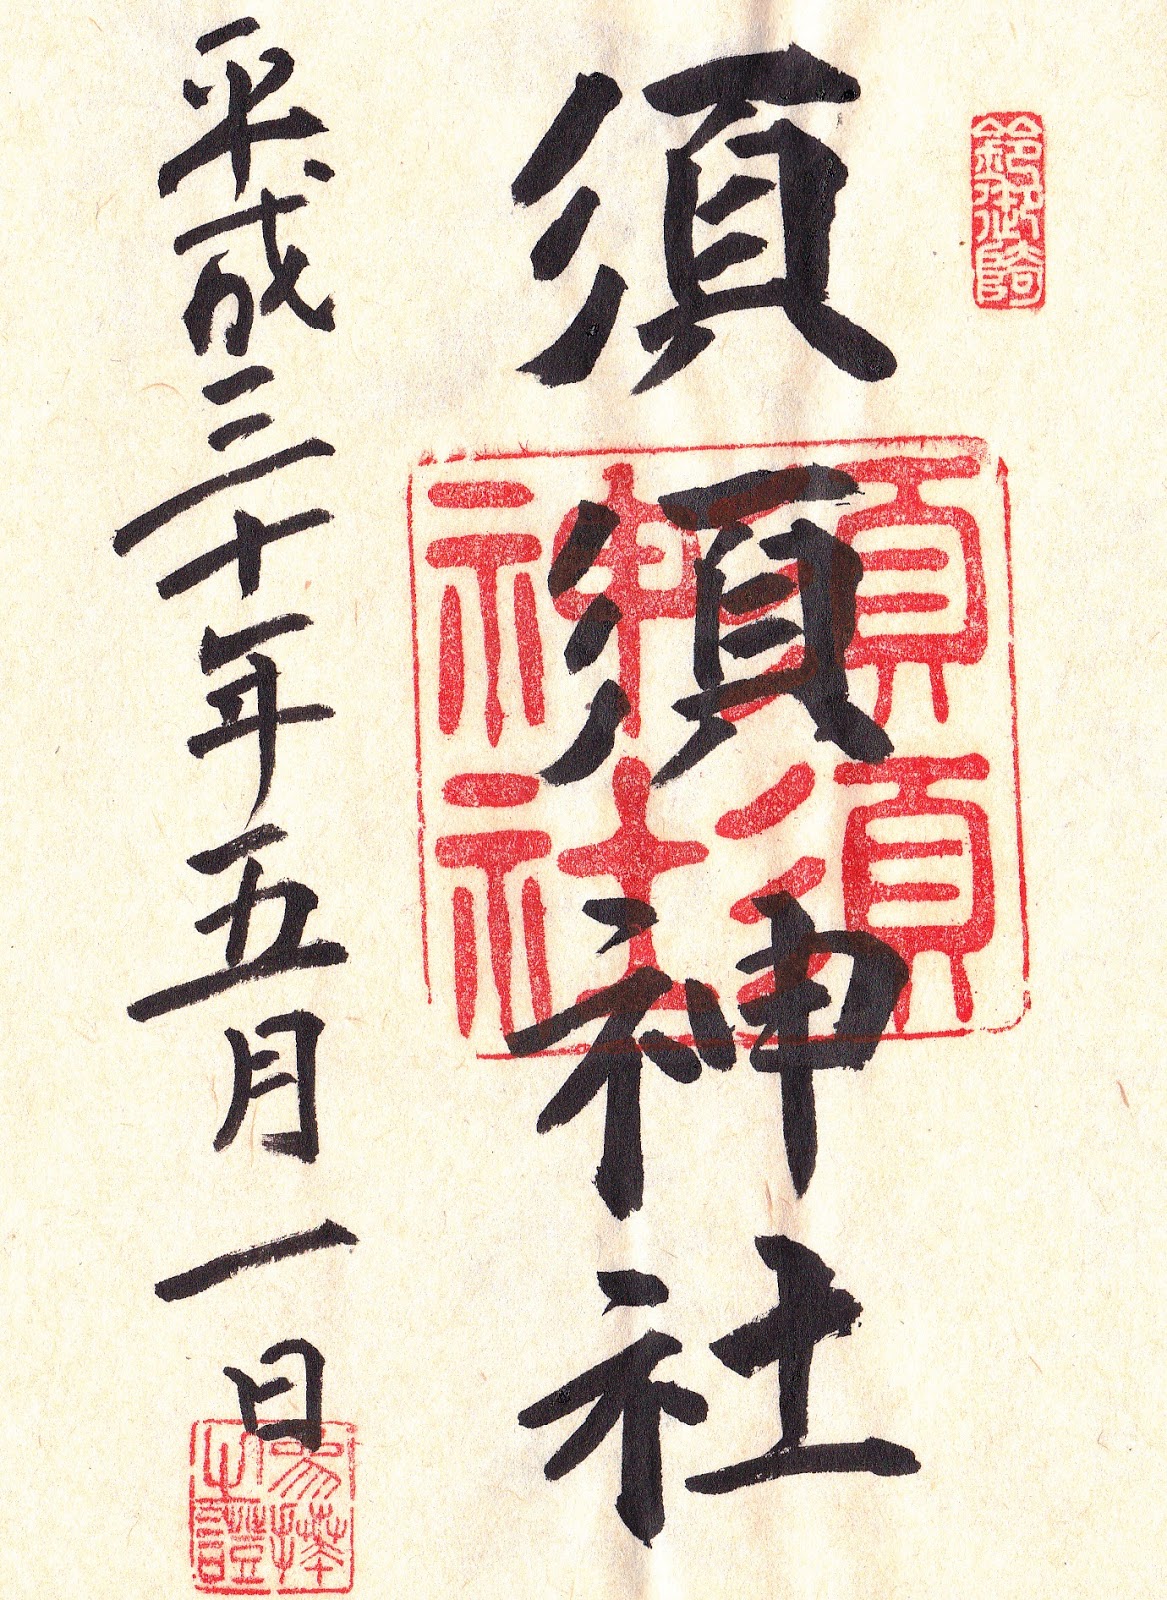 須須神社
平成三十年五月一日
須須
神社